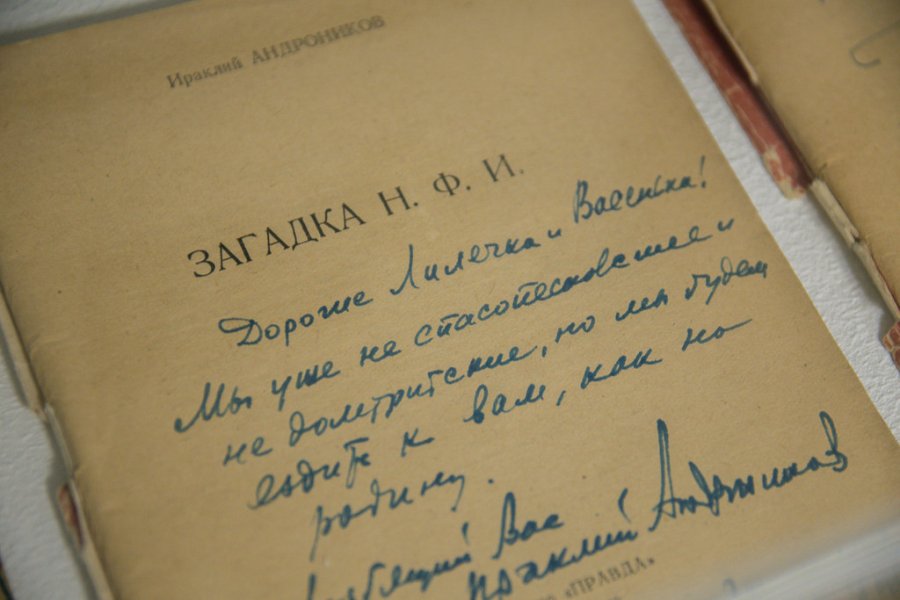 Ираклий АНДРОНИКОВ
ЗАГАДКА Н. Ф. И.
Дорогие Лилечка и Васенька!
Мы уже не спасопесковские и
не домтритские, но мы будем
ездить к вам, как на
родину.
Любящий Вас
Ираклий Андроников
«ПРАВДА»